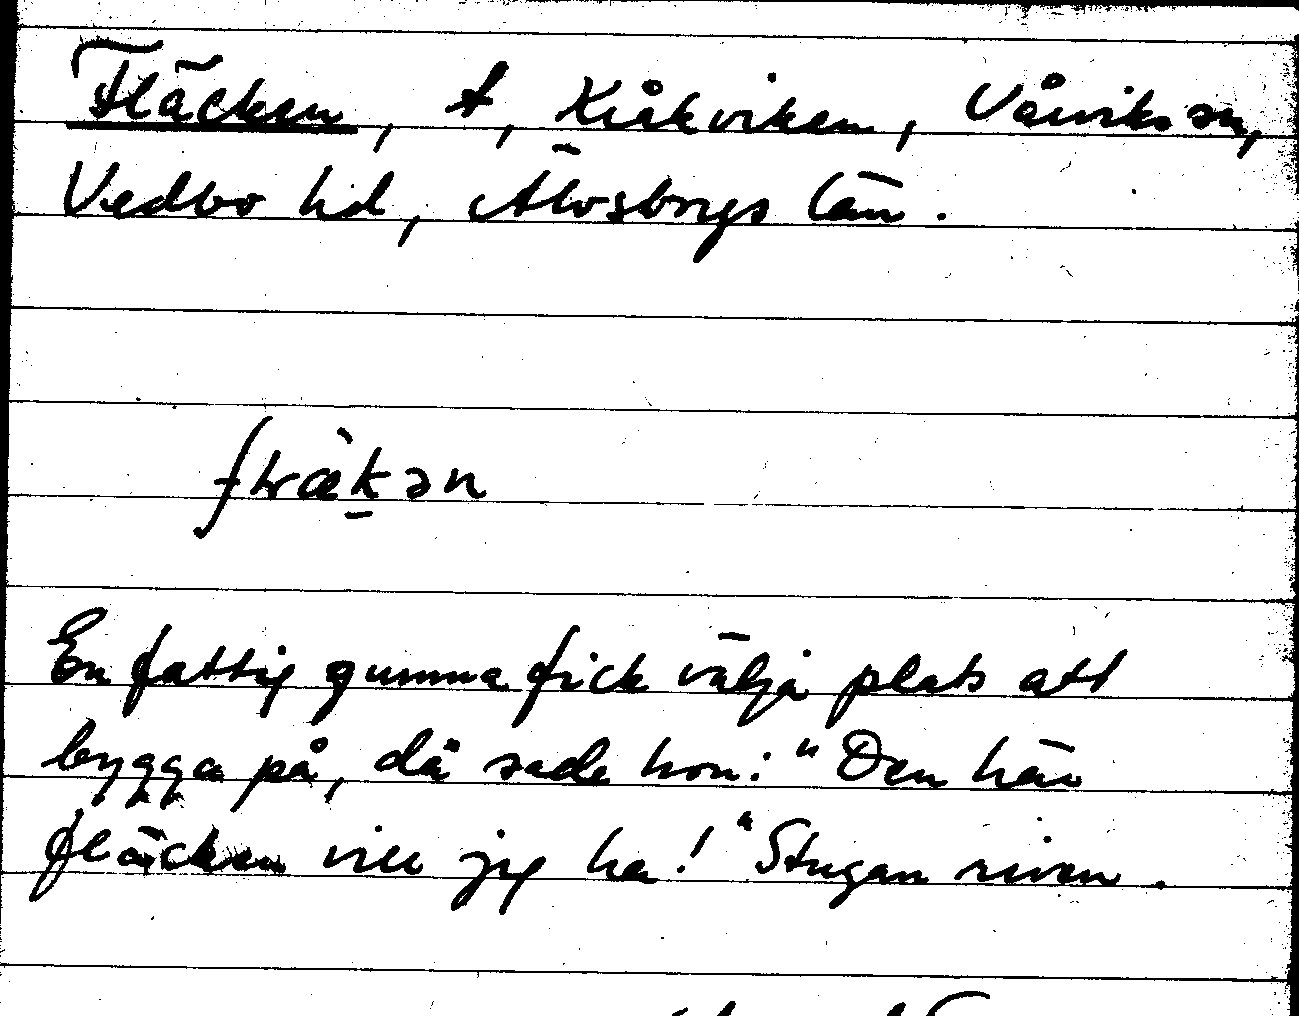 Fläcken, t, Kråkviken, Vårviks sn,
Vedbo hd, Älvsborgs län.
En fattig gumma fick välja plats att
bygga på, då sade hon: "Den här
fläcken vill jag ha!" Stugan riven.